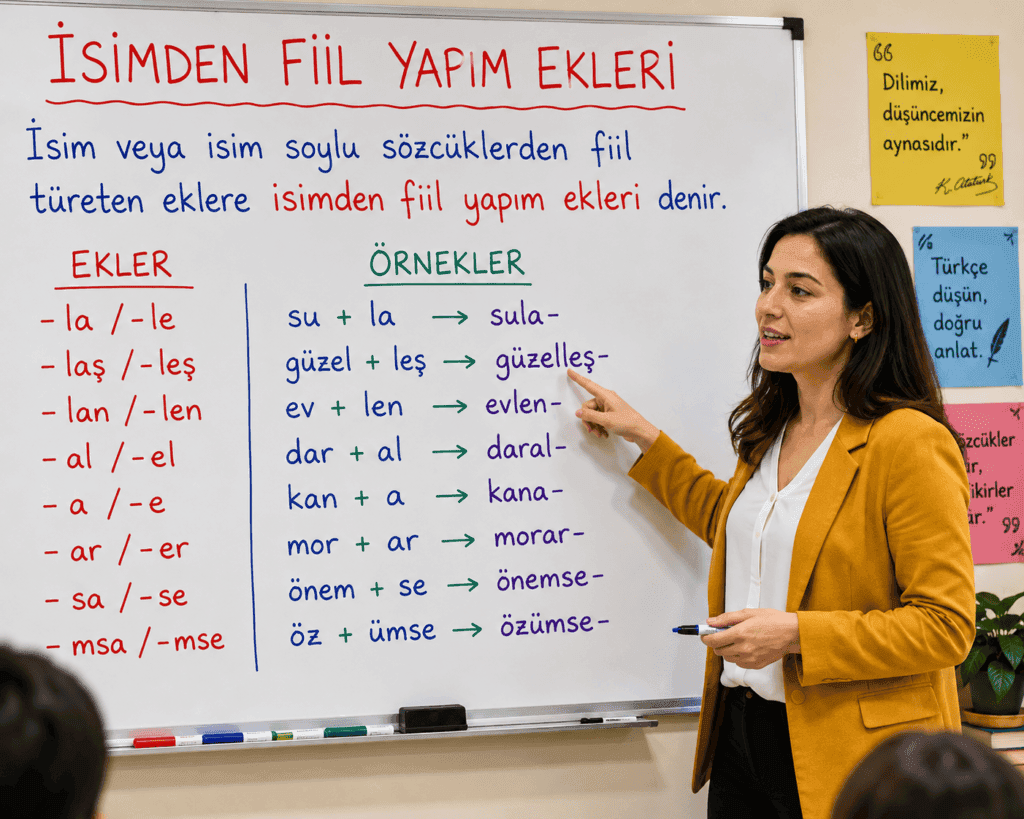 İSİMDEN FİİL YAPIM EKLERİ
İsim veya isim soylu sözcüklerden fiil
türeten eklere isimden fiil yapım ekleri denir.
EKLER
- la /-le
- laş /-leş
- lan /-len
- al /-el
- a /-e
- ar /-er
- sa /-se
- msa /-mse
ÖRNEKLER
su + la → sula-
güzel + leş → güzelleş-
ev + len → evlen-
dar + al → daral-
kan + a → kana-
mor + ar → morar-
önem + se → önemse-
öz + ümse → özümse-
Dilimiz,
düşüncemizin
aynasıdır.”
K. Atatürk
Türkçe
düşün,
doğru
anlat.